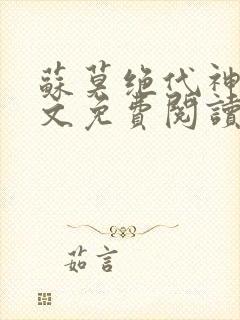 蘇莫绝代神
文免費閱讀
茹言